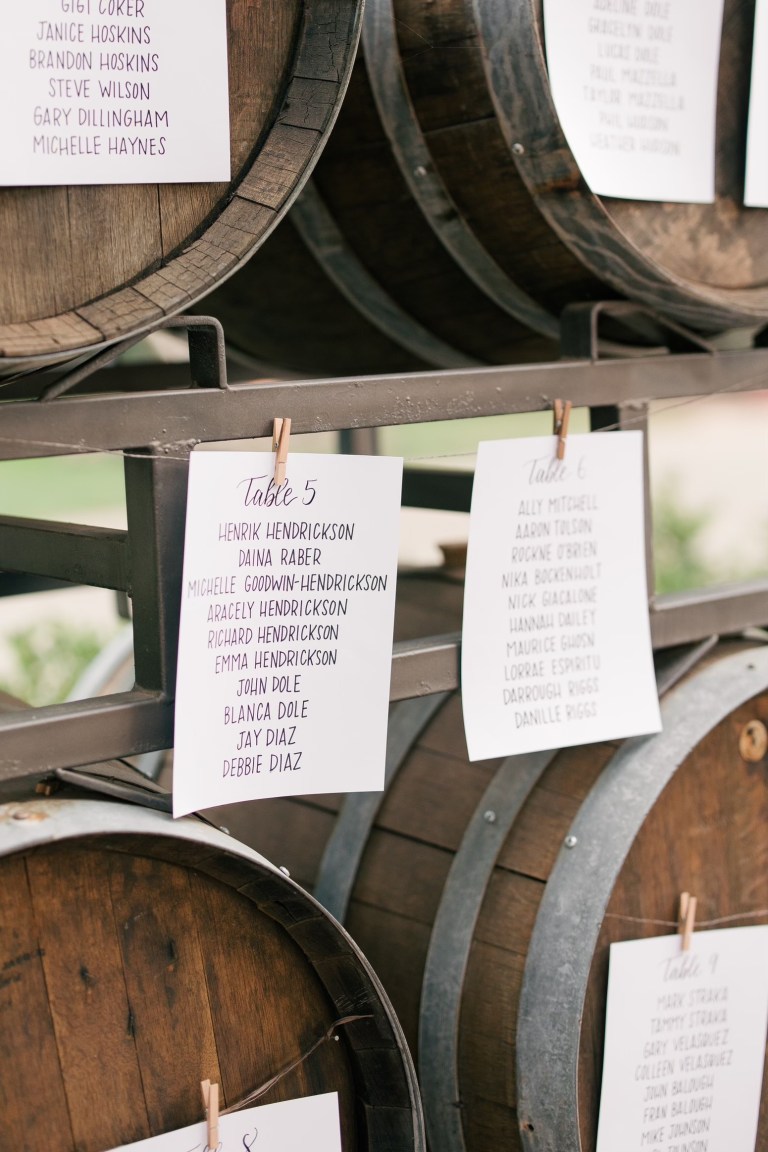 GIGI COKER
JANICE HOSKINS
BRANDON HOSKINS
STEVE WILSON
GARY DILLINGHAM
MICHELLE HAYNES
ADELINE DOLE
GRACELYN DOLE
LUCAS DOLE
PAUL MAZZELLA
TAYLOR MAZZELLA
PHIL HUDSON
HEATHER HUDSON
Table 5
HENRIK HENDRICKSON
DAINA RABER
MICHELLE GOODWIN-HENDRICKSON
ARACELY HENDRICKSON
RICHARD HENDRICKSON
EMMA HENDRICKSON
JOHN DOLE
BLANCA DOLE
JAY DIAZ
DEBBIE DIAZ
Table 6
ALLY MITCHELL
AARON TOLSON
ROCKNE O'BRIEN
NIKA BOCKENHOLT
NICK GIACALONE
HANNAH DAILEY
MAURICE GHOSN
LORRAE ESPIRITU
DARROUGH RIGGS
DANILLE RIGGS
Table 9
MARK STRAKA
TAMMY STRAKA
GARY VELASQUEZ
COLLEEN VELASQUEZ
JOHN BALOUGH
FRAN BALOUGH
MIKE JOHNSON
JOHNSON
8